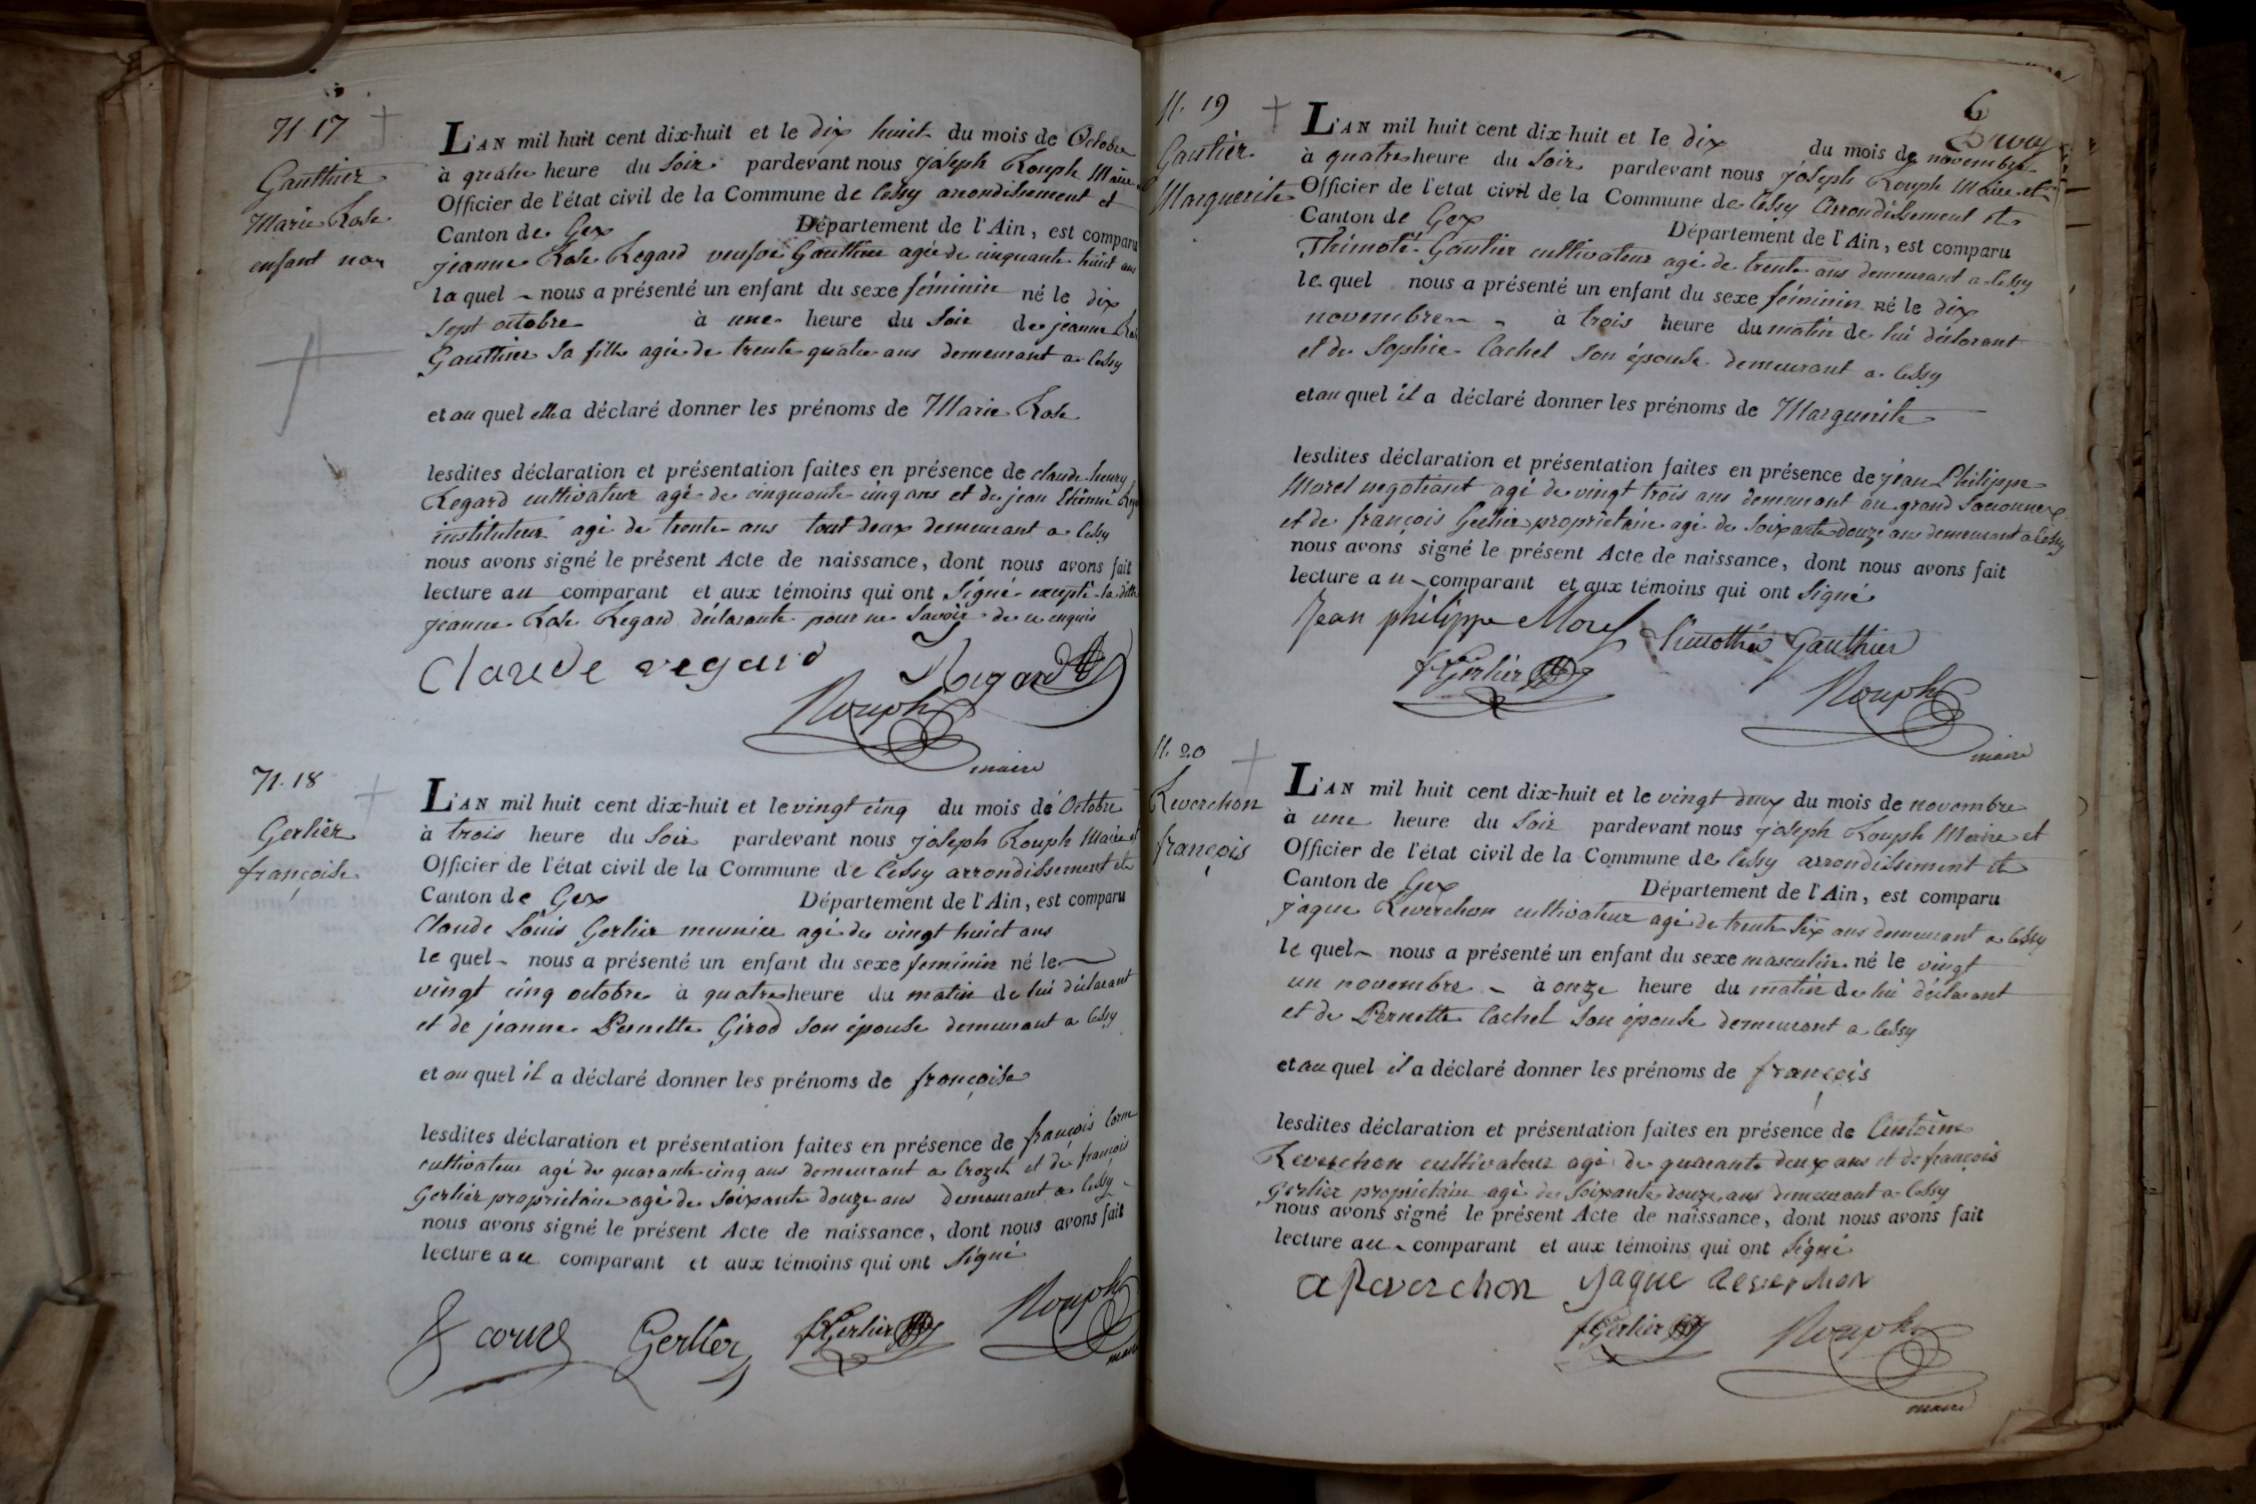 N. 17
Gauthier
Marie Rose
enfant nat
L'AN mil huit cent dix-huit et le dix huit du mois de Octobre
à quatre heure du Soir pardevant nous joseph Rouph Maire et
Officier de l'état civil de la Commune de Cessy arrondissement et
Canton de Gex Département de l'Ain, est comparu
jeanne Rose Regard veufve Gauthier agée de cinquante huit ans
la quel nous a présenté un enfant du sexe féminin né le dix
Sept octobre à une heure du Soir de jeanne Rose
Gauthier Sa fille agée de trente quatre ans demeurant a Cessy
et au quel elle a déclaré donner les prénoms de Marie Rose
lesdites déclaration et présentation faites en présence de claude henry
Regard cultivateur agé de cinquante cinq ans et de jean Etienne
instituteur agé de trente ans tout deux demeurant a Cessy
nous avons signé le présent Acte de naissance, dont nous avons fait
lecture au comparant et aux témoins qui ont Signé excepté la ditte
jeanne Rose Regard déclarante pour ne Savoir de ce enquis
Claude regard Regard
Rouph
maire
N. 18
Gerlier
françoise
L'AN mil huit cent dix-huit et le vingt cinq du mois de Octobre
à trois heure du Soir pardevant nous joseph Rouph Maire et
Officier de l'état civil de la Commune de Cessy arrondissement et
Canton de Gex Département de l'Ain, est comparu
Claude Louis Gerlier meunier agé de vingt huict ans
le quel nous a présenté un enfant du sexe feminin né le
vingt cinq octobre à quatre heure du matin de lui déclarant
et de jeanne Pernette Girod son épouse demeurant a Cessy
et au quel il a déclaré donner les prénoms de françoise
lesdites déclaration et présentation faites en présence de françois Corne
cultivateur agé de quarante cinq ans demeurant a Crozet et de françois
Gerlier proprietaire agé de soixante douze ans demeurant a Cessy
nous avons signé le présent Acte de naissance, dont nous avons fait
lecture au comparant et aux témoins qui ont Signé
f corne Gerlier fGerlier Rouph
maire
6
N. 19
Gautier
Marguerite
L'AN mil huit cent dix-huit et le dix du mois de novembre
à quatre heure du Soir pardevant nous joseph Rouph Maire et
Officier de l'état civil de la Commune de Cessy Arrondissement et
Canton de Gex Département de l'Ain, est comparu
Thimoté Gautier cultivateur agé de trente ans demeurant a Cessy
le quel nous a présenté un enfant du sexe féminin né le dix
novembre à trois heure du matin de lui déclarant
et de Sophie Cachel Son épouse demeurant a Cessy
et au quel il a déclaré donner les prénoms de Marguerite
lesdites déclaration et présentation faites en présence de jean Philippe
Morel negotiant agé de vingt trois ans demeurant au grand Saconnex
et de françois Gerlier proprietaire agé de Soixante douze ans demeurant a Cessy
nous avons signé le présent Acte de naissance, dont nous avons fait
lecture au comparant et aux témoins qui ont Signé
Jean philippe Morel Timothée Gauthier
fGerlier Rouph
maire
N. 20
Reverchon
françois
L'AN mil huit cent dix-huit et le vingt deux du mois de novembre
à une heure du Soir pardevant nous joseph Rouph Maire et
Officier de l'état civil de la Commune de Cessy arrondissement et
Canton de Gex Département de l'Ain, est comparu
jaque Reverchon cultivateur agé de trente Six ans demeurant a Cessy
le quel nous a présenté un enfant du sexe masculin né le vingt
un novembre à onze heure du matin de lui déclarant
et de Pernette Cachel Son épouse demeurant a Cessy
et au quel il a déclaré donner les prénoms de françois
lesdites déclaration et présentation faites en présence de Antoine
Reverchon cultivateur agé de quarante deux ans et de françois
Gerlier proprietaire agé de Soixante douze ans demeurant a Cessy
nous avons signé le présent Acte de naissance, dont nous avons fait
lecture au comparant et aux témoins qui ont Signé
a Reverchon Jaque Reverchon
fGerlier Rouph
maire